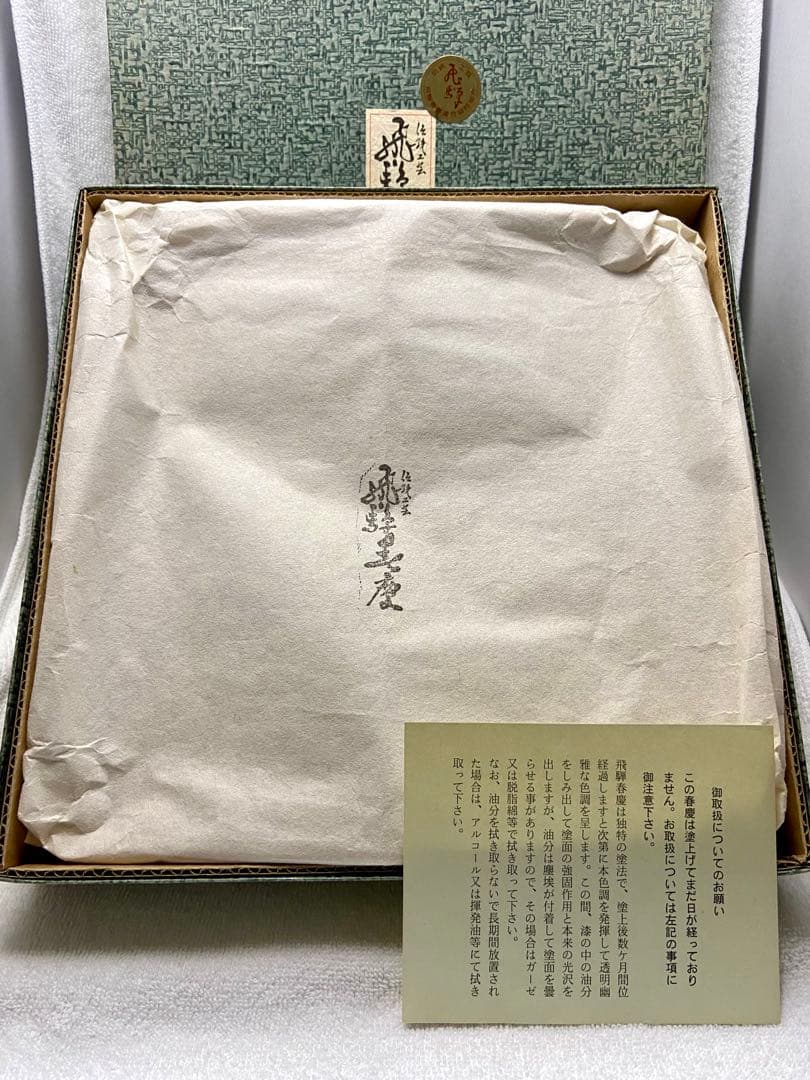 飛騨
伝統工芸
飛騨
伝統工芸
飛騨春慶
御取扱についてのお願い
この春慶は塗上げてまだ日が経っており
ません。お取扱については左記の事項に
御注意下さい。
飛騨春慶は独特の塗法で、塗上後数ケ月間位
経過しますと次第に本色調を発揮して透明幽
雅な色調を呈します。この間、漆の中の油分
をしみ出して塗面の強固作用と本来の光沢を
出しますが、油分は塵埃が付着して塗面を曇
らせる事がありますので、その場合はガーゼ
又は脱脂綿等で拭き取って下さい。
なお、油分を拭き取らないで長期間放置され
た場合は、アルコール又は揮発油等にて拭き
取って下さい。